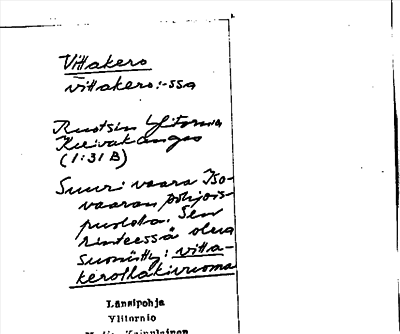 Vittakero
vittakero:-ssa
Ruotsin Ylitornio
Kuivakangas
(1:31 B)
Suuri vaara Iso-
vaaran pohjois-
puolella. Sen
rinteessä oleva
suoniitty: vitta-
kerotlakivuoma
Länsipohja
Ylitornio